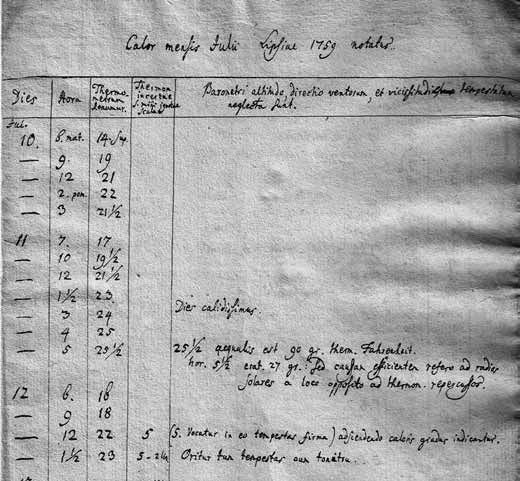 Calor mensis Julii Lipsiae 1759 notatus.
Dies Hora Thermometrum Barometri altitudo, directio ventorum, et vicissitudines tempestatum
neglectae sunt.
Jul.
10. 6. mat. 14 sup.
— 9. 19
— 12 21
— 2. pom. 22
— 3 21½
11 7. 17
— 10 19½
— 12 21½
— 1½ 23.
— 3 24 Dies calidissimus.
— 4 25
— 5 25½ 25½ aequalis est 90 gr. therm. Fahrenheit.
hor. 5½ erat 27 gr.: sed caussam efficientem refero ad radios
solares a loco opposito ad thermom. repercussos.
12 6. 16
— 9 18
— 12 22 5 (5. vocatur in eo tempestas firma) adscendendo caloris gradus indicantur.
— 1½ 23 5 Oritur tum tempestas cum tonitru.